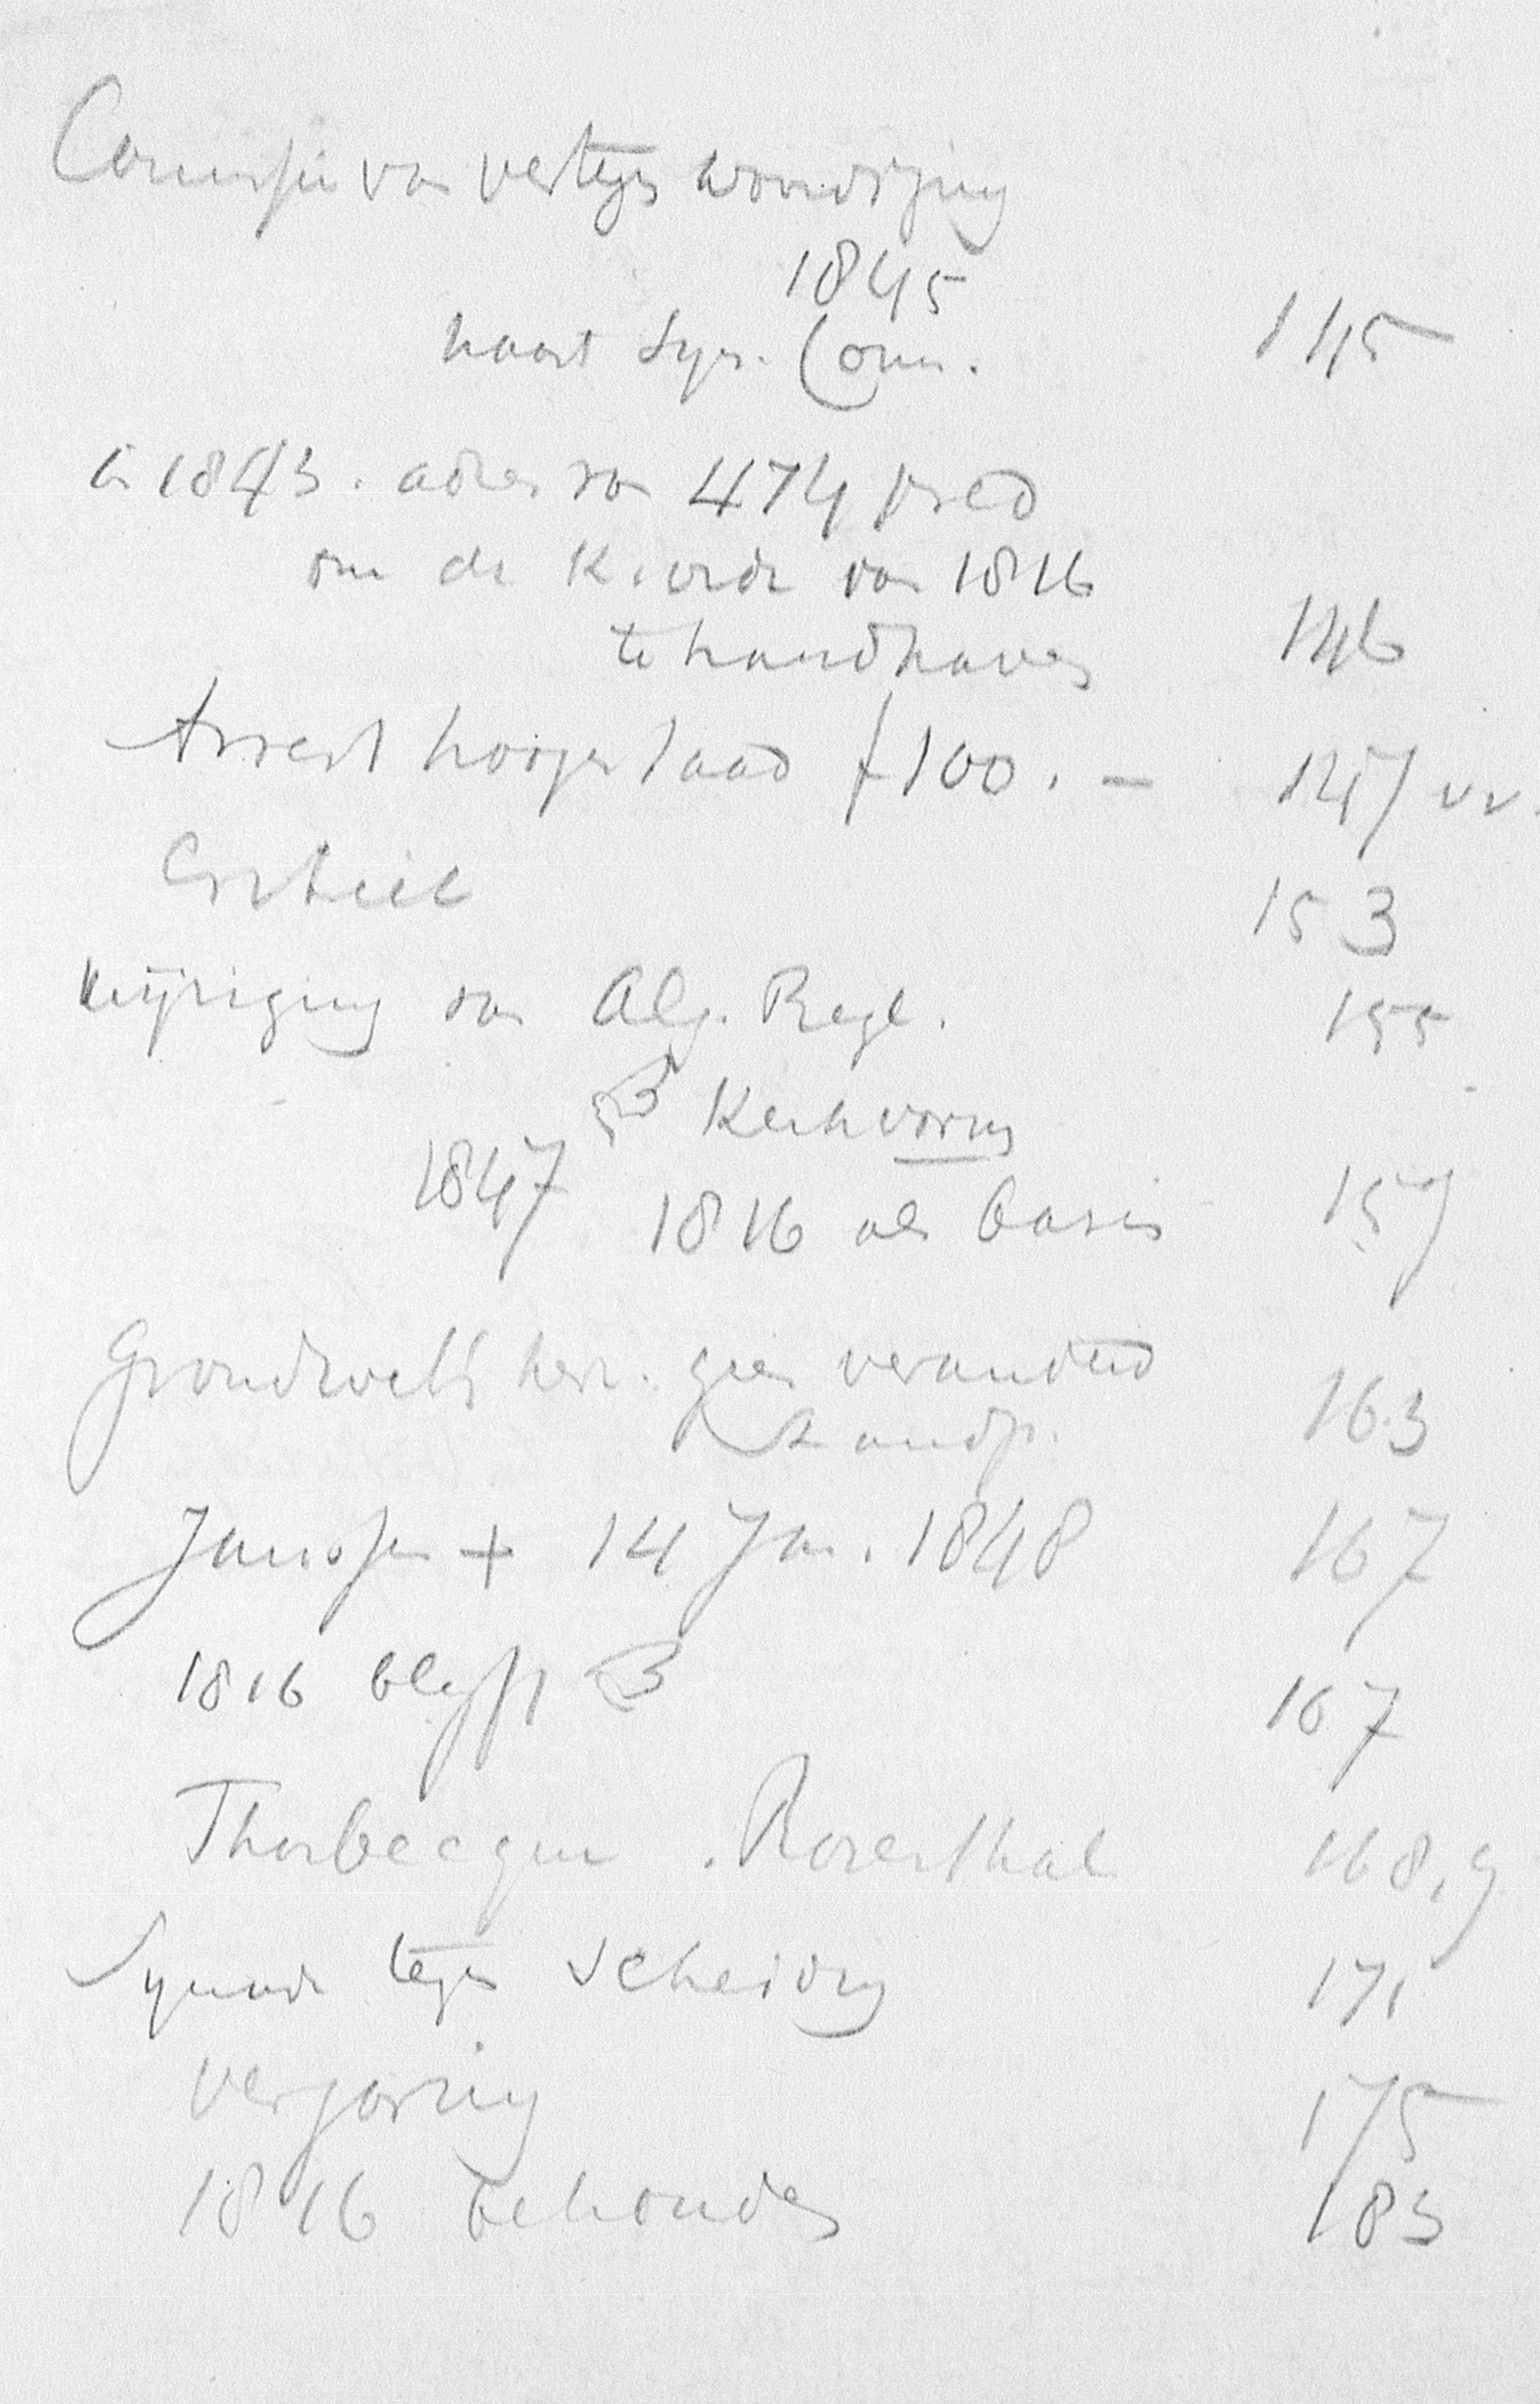 Commissie van vertegenwoordiging
1845
naast Syn. Comm. 145
in 1843. adres van 474 pred
om de K. orde van 1816
te handhaven 146
Arrest hooge raad f 100.— 147 vv.
153
Wijziging van Alg. Regl. 155
Kerkvorm
1847 1816 als basis 159
Grondwetsherz. geen veranderd
standp. 163
Janssen + 14 Jan. 1848 167
1816 blijft 167
Thorbecque. Rosenthal 168,9
Synode tegen scheiding 171
Verjaring 175
1816 behouden 183